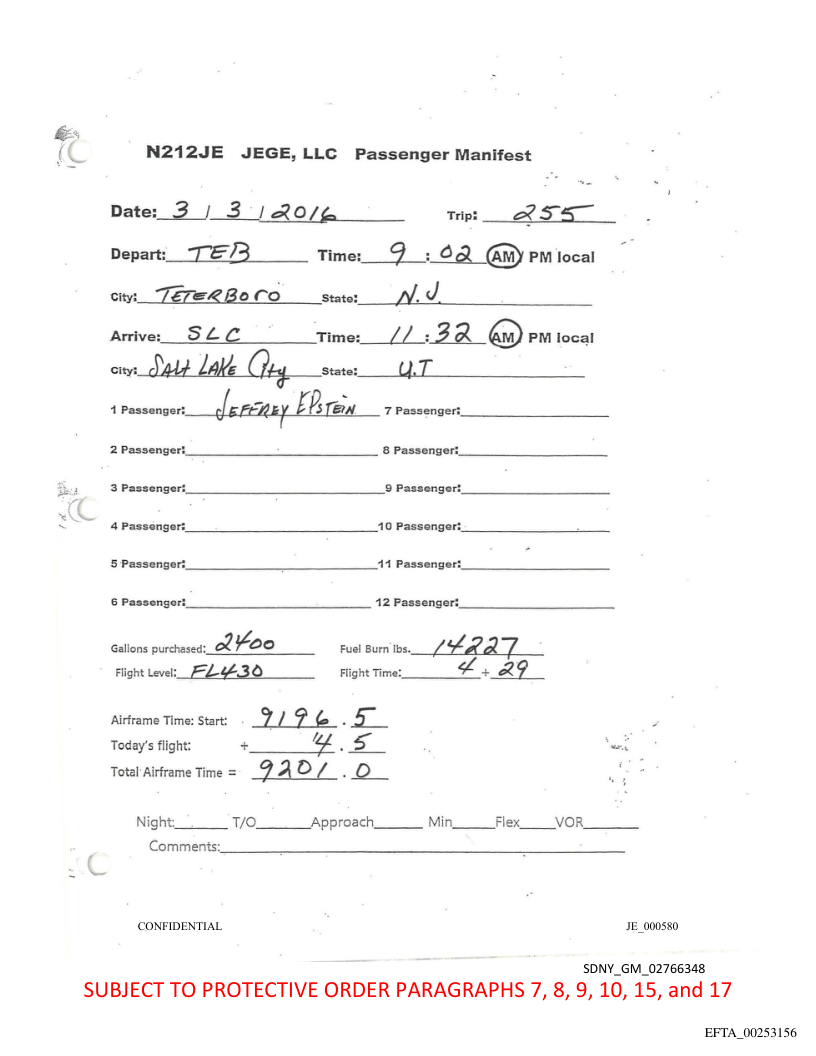 N212JE JEGE, LLC Passenger Manifest
Date: 3 / 3 / 2016 Trip: 255
Depart: TEB Time: 9 : 02 AM PM local
City: TETERBORO State: N.J.
Arrive: SLC Time: 11 : 32 AM PM local
City: SALT LAKE City State: U.T
1 Passenger: JEFFREY EPSTEIN 7 Passenger:
2 Passenger: 8 Passenger:
3 Passenger: 9 Passenger:
4 Passenger: 10 Passenger:
5 Passenger: 11 Passenger:
6 Passenger: 12 Passenger:
Gallons purchased: 2400 Fuel Burn lbs. 14227
Flight Level: FL430 Flight Time: 4 + 29
Airframe Time: Start: 9196 . 5
Today's flight: + 4 . 5
Total Airframe Time = 9201 . 0
Night: T/O Approach Min Flex VOR
Comments:
CONFIDENTIAL JE_000580
SDNY_GM_02766348
SUBJECT TO PROTECTIVE ORDER PARAGRAPHS 7, 8, 9, 10, 15, and 17
EFTA_00253156